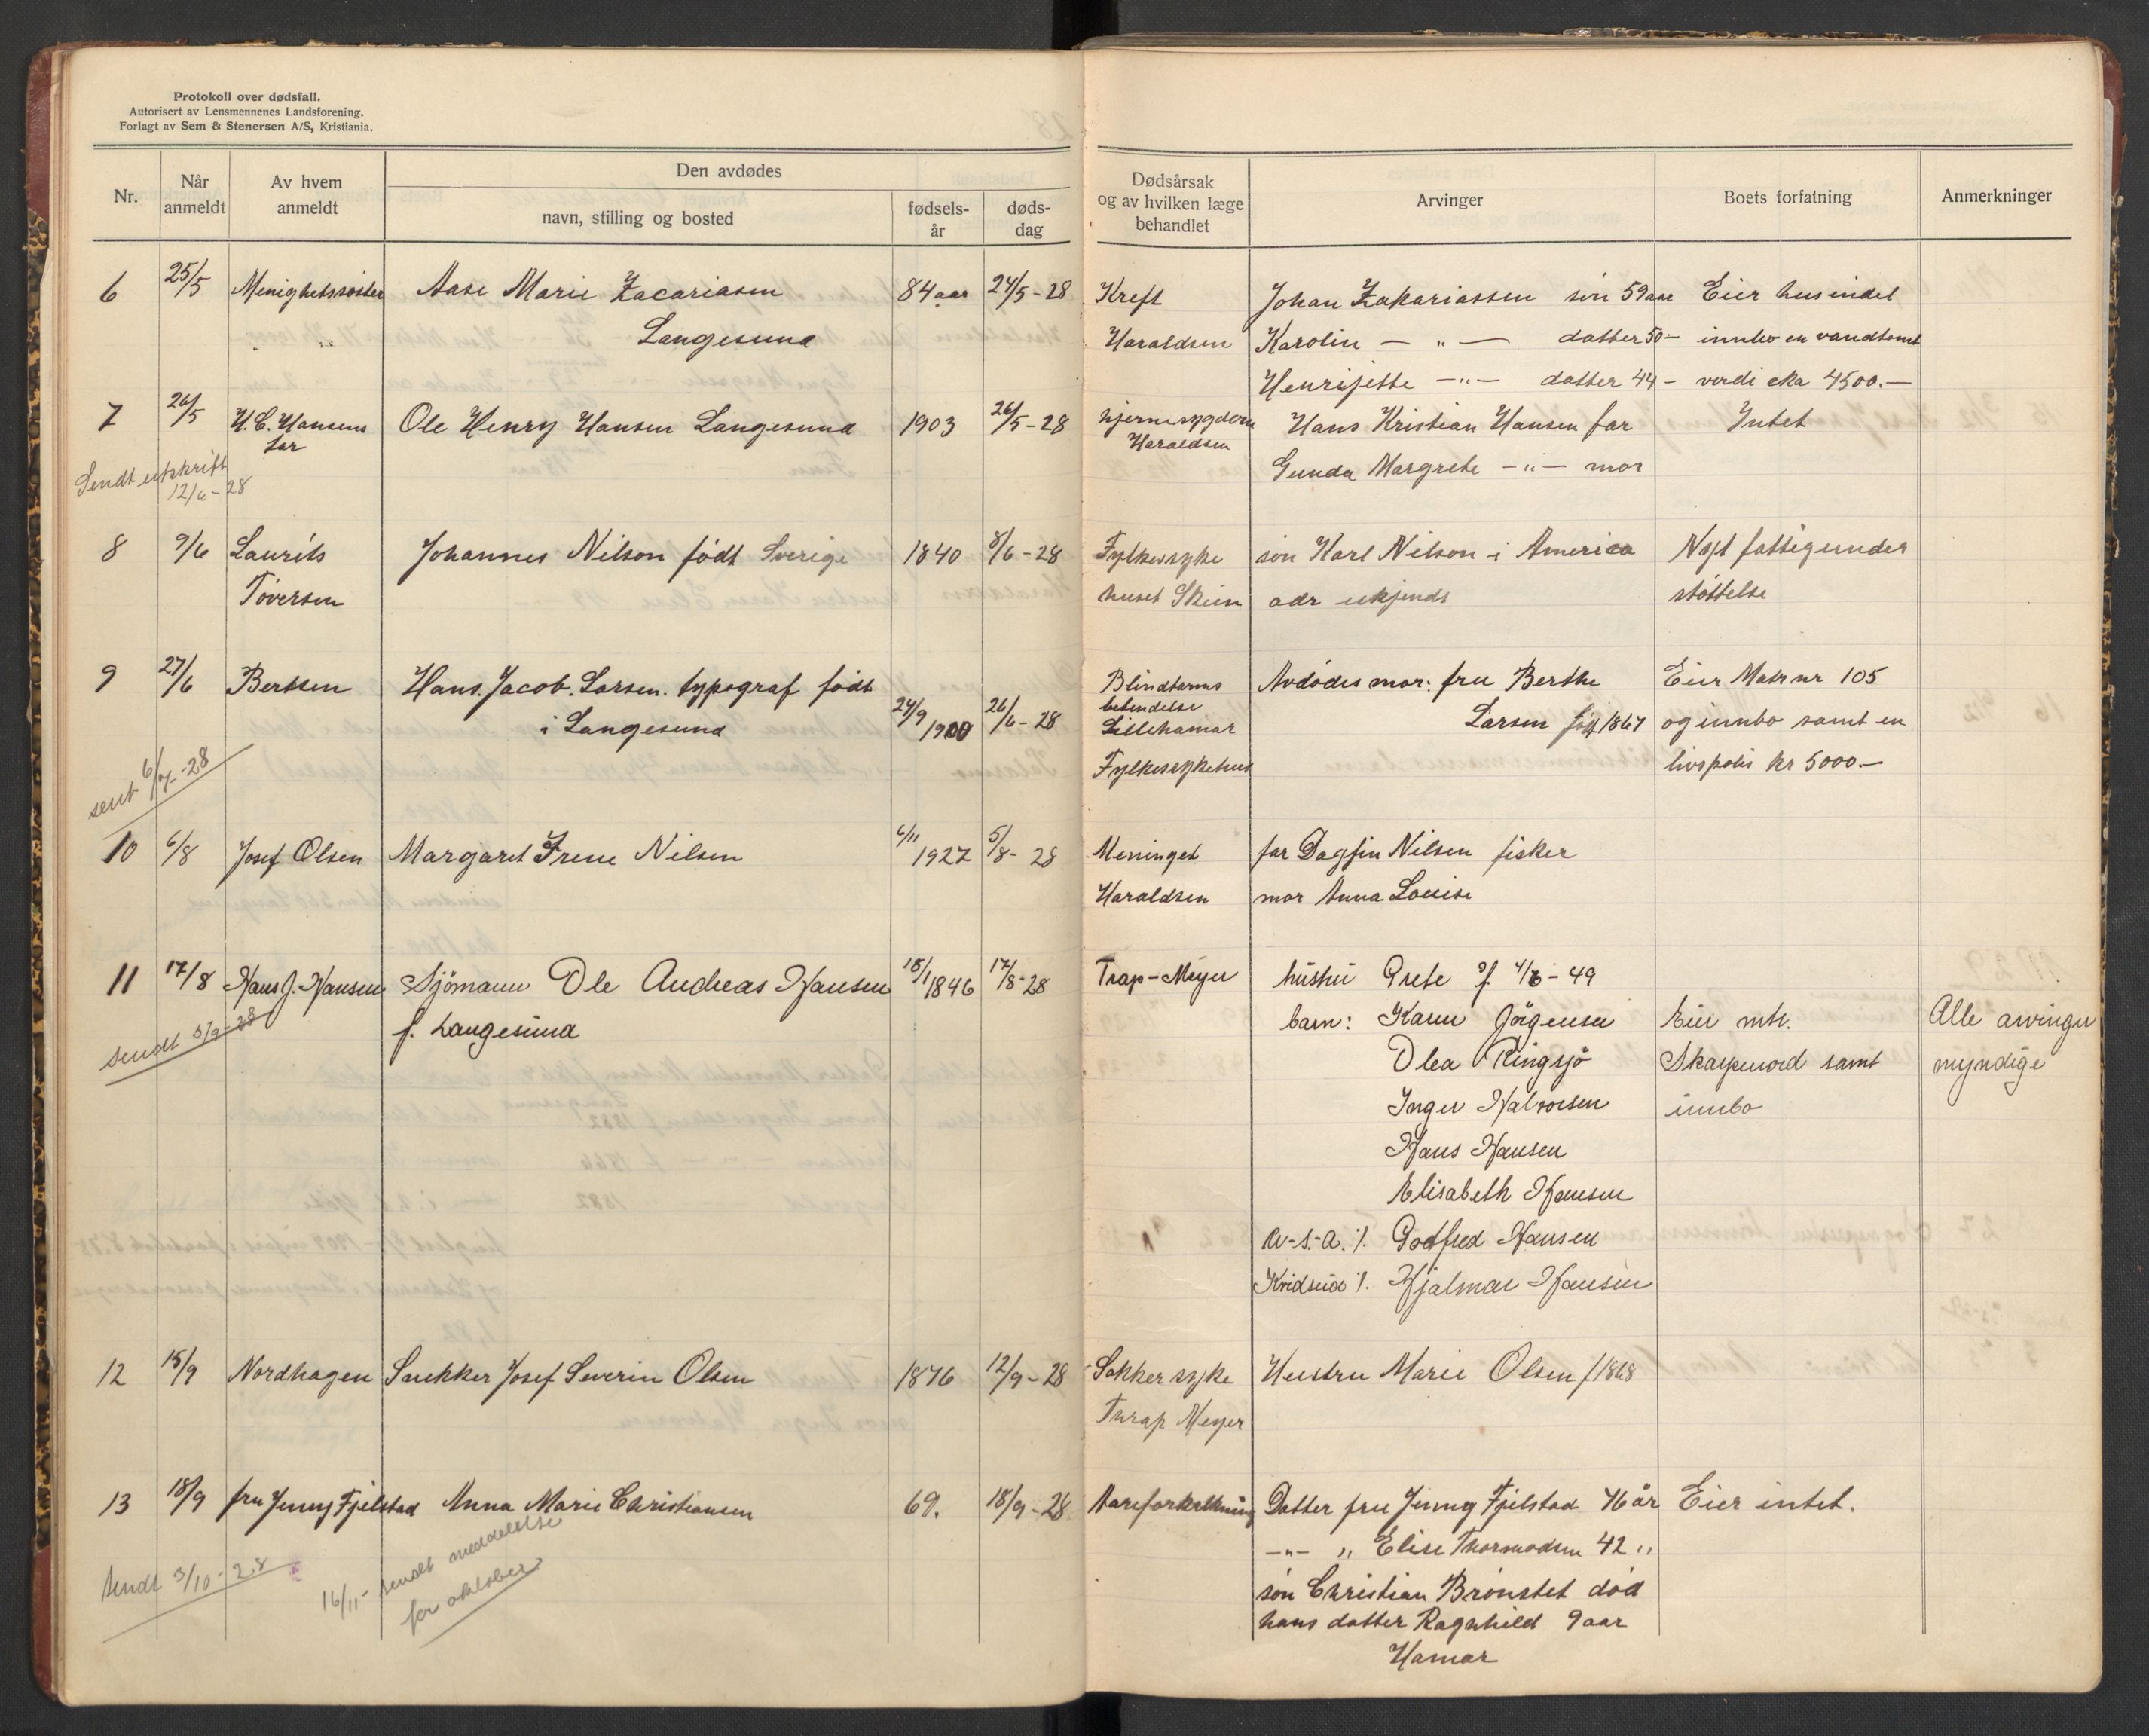 Protokoll over dødsfall.
Autorisert av Lensmennenes Landsforening.
Forlagt av Sem & Stenersen A/S, Kristiania.
Nr.
Når anmeldt
Av hvem anmeldt
Den avdødes
navn, stilling og bosted
fødsels-år
døds-dag
Dødsårsak og av hvilken læge behandlet
Arvinger
Boets forfatning
Anmerkninger
6 25/5 Menighetssøster Aase Marie Zacariasen 84 aar 24/5-28 Kreft Johan Zakariassen sön 59 aar Eier hus endel
Langesund Haraldsen Karolin — " — datter 50 — innbo en vandtomt
Henrijette —"— datter 44 — verdi cka 4500.—
7 26/5 H.C. Hansens Ole Henry Hansen Langesund 1903 26/5-28 Hjernesygdom Hans Kristian Hansen far Intet
far Haraldsen
Gunda Margrete —"— mor
Sendt utskrift
12/6-28
8 9/6 Laurits Johannes Nilson født Sverige 1840 8/6-28 Fylkessyke sön Karl Nilson i America Nyt fattigunder
Töversen huset Skien adr ukjendt støttelse
9 27/6 Bertsen Hans. Jacob. Larsen. typograf født 24/9 1900 26/6-28 Blindtarms Avdödes mor: fru Berthe Eier Matr nr 105
i Langesund betendelse Larsen født 1867 og innbo samt en
Lillehamar
Fylkessykehus livspolis kr 5000.—
sent 6/7-28
10 6/8 Josef Olsen Margaret Irene Nilsen 6/11 1927 5/8-28 Meninget far Dagfin Nilsen fisker
Haraldsen mor Anna Louise
11 17/8 Hans J. Hansen Sjömann Ole Andreas Hansen 18/1 1846 17/8-28 Trap-Meyer hustru Grete f. 4/6-49
f. Langesund barn: Karen Jörgensen Eier mtr. Alle arvinger
sendt 5/9-28
Olea Ringsjö Skarpenord samt myndige
Inger Halvorsen innbo
Hans Hansen
Elisabeth Hansen
U-S.-A. /. Godtfred Hansen
Kvidseid /. Hjalmar Hansen
12 15/9 Nordhagen Snekker Josef Severin Olsen 1876 12/9-28 Sokkersyke Hustru Marie Olsen f 1868
Thrap Meyer
13 18/9 fru Jenny Fjelstad Anna Marie Christiansen 69. 18/9-28 Aareforkalkning Datter fru Jenny Fjelstad 46 år Eier intet.
—"— " Elise Thormodsen 42 "
sön Christian Brönstet död
hans datter Ragnhild 9 aar
Hamar
Sendt 3/10-28
16/11- sendt meddelelse
for oktober